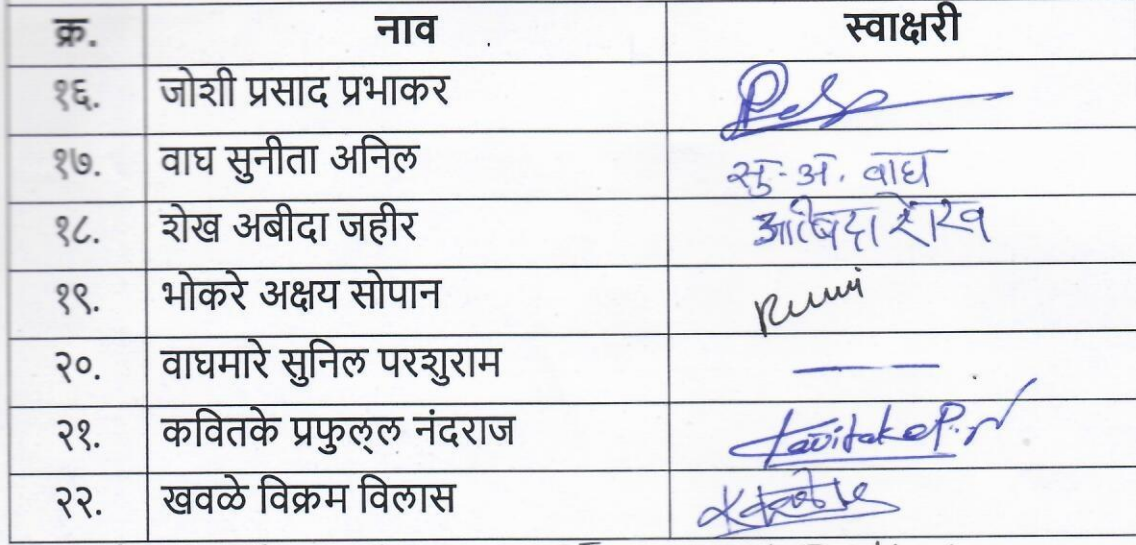 क्र. नाव स्वाक्षरी
१६. जोशी प्रसाद प्रभाकर
१७. वाघ सुनीता अनिल सु. अ. वाघ
१८. शेख अबीदा जहीर आबिदा शेख
१९. भोकरे अक्षय सोपान
२०. वाघमारे सुनिल परशुराम
२१. कवितके प्रफुल्ल नंदराज Kavitake P. N
२२. खवळे विक्रम विलास